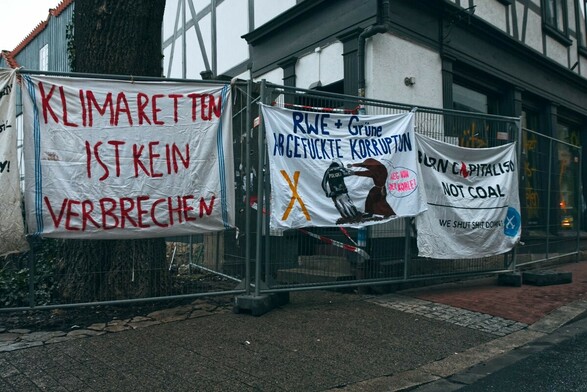 KLIMARETTEN
IST KEIN
VERBRECHEN
RWE + Grüne
ABGEFUCKTE KORRUPTION
BURN CAPITALISM
NOT COAL
WE SHUT SHIT DOWN